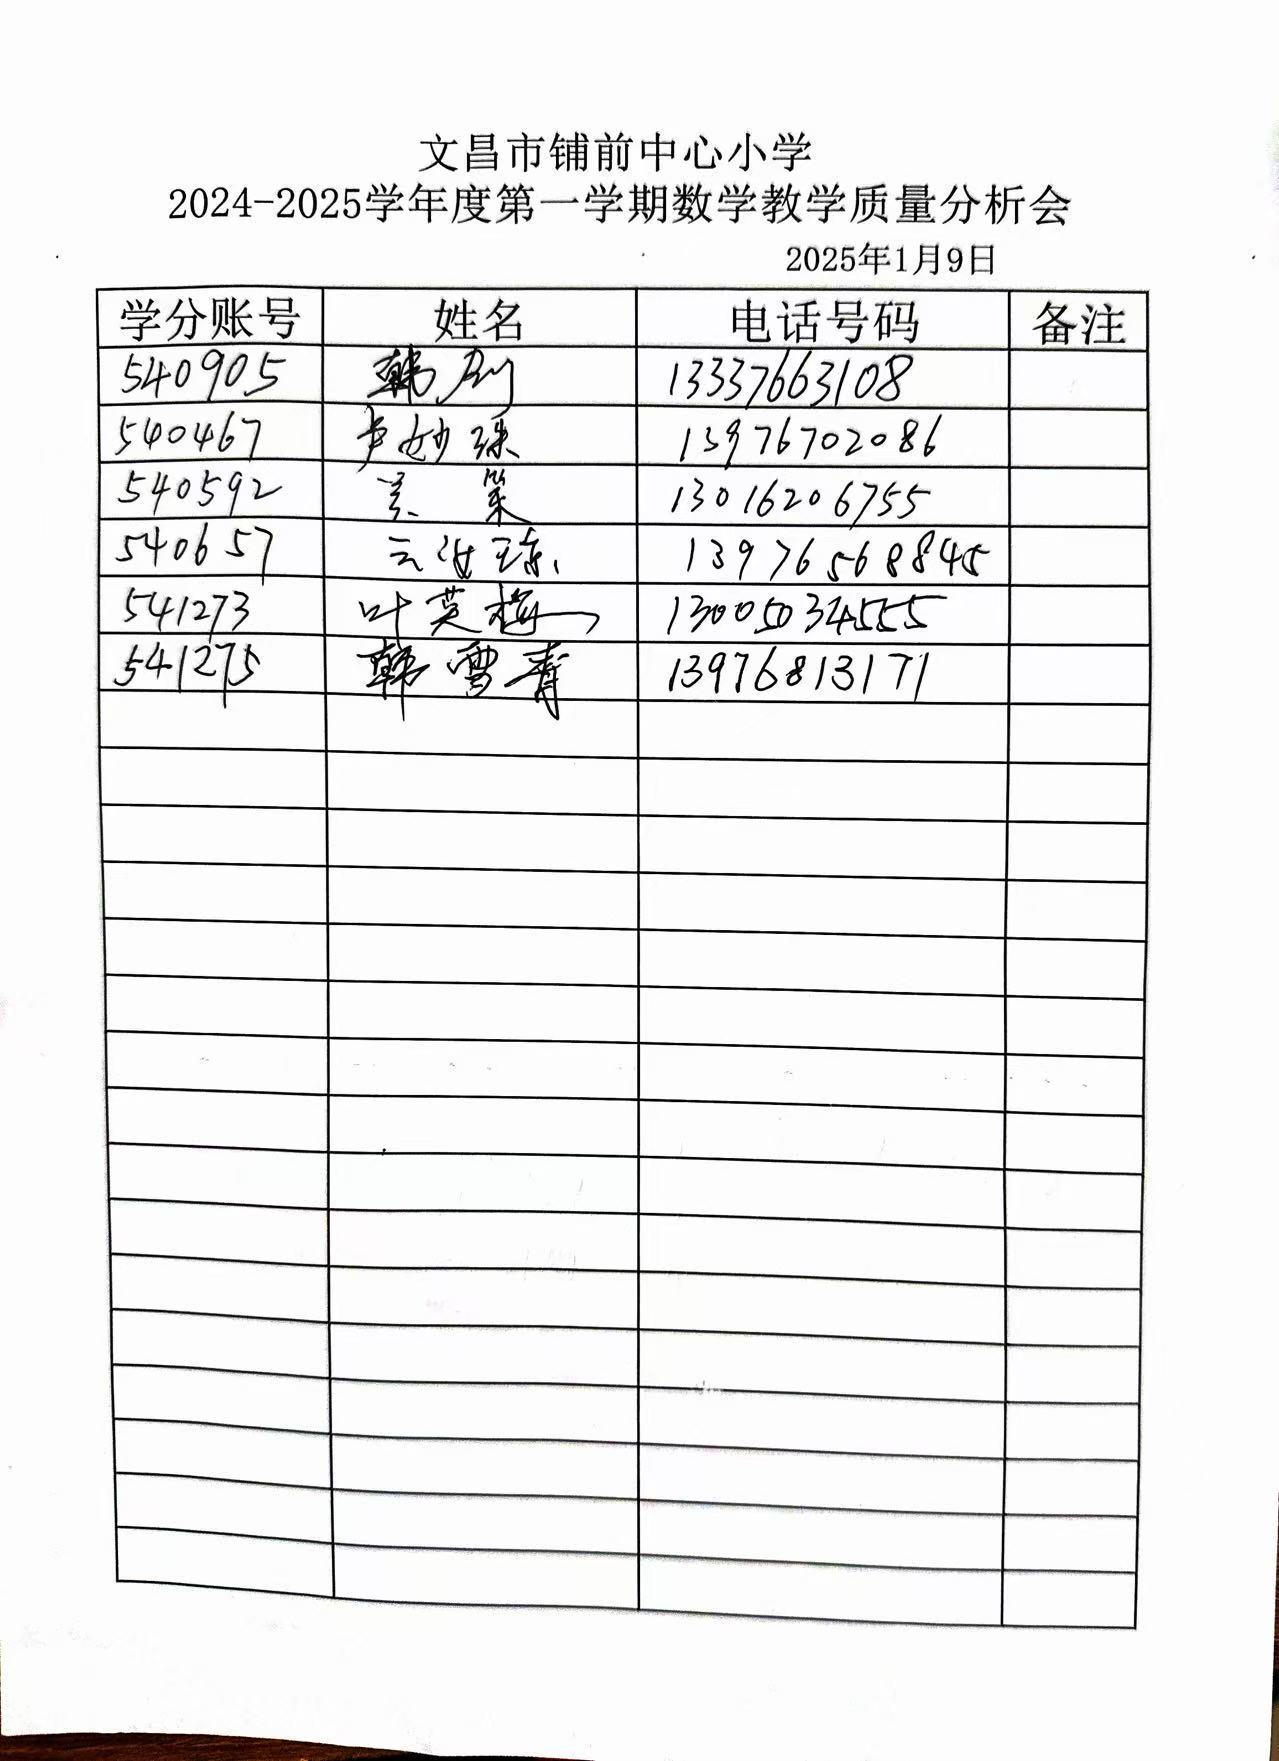 文昌市铺前中心小学
2024-2025学年度第一学期数学教学质量分析会
2025年1月9日
学分账号 姓名 电话号码 备注
540905 韩 13337663108
540467 卢妙珠 13976702086
540592 策 13016206755
540657 云 琼 13976568845
541273 叶英梅 13005034555
541275 韩雪青 13976813171